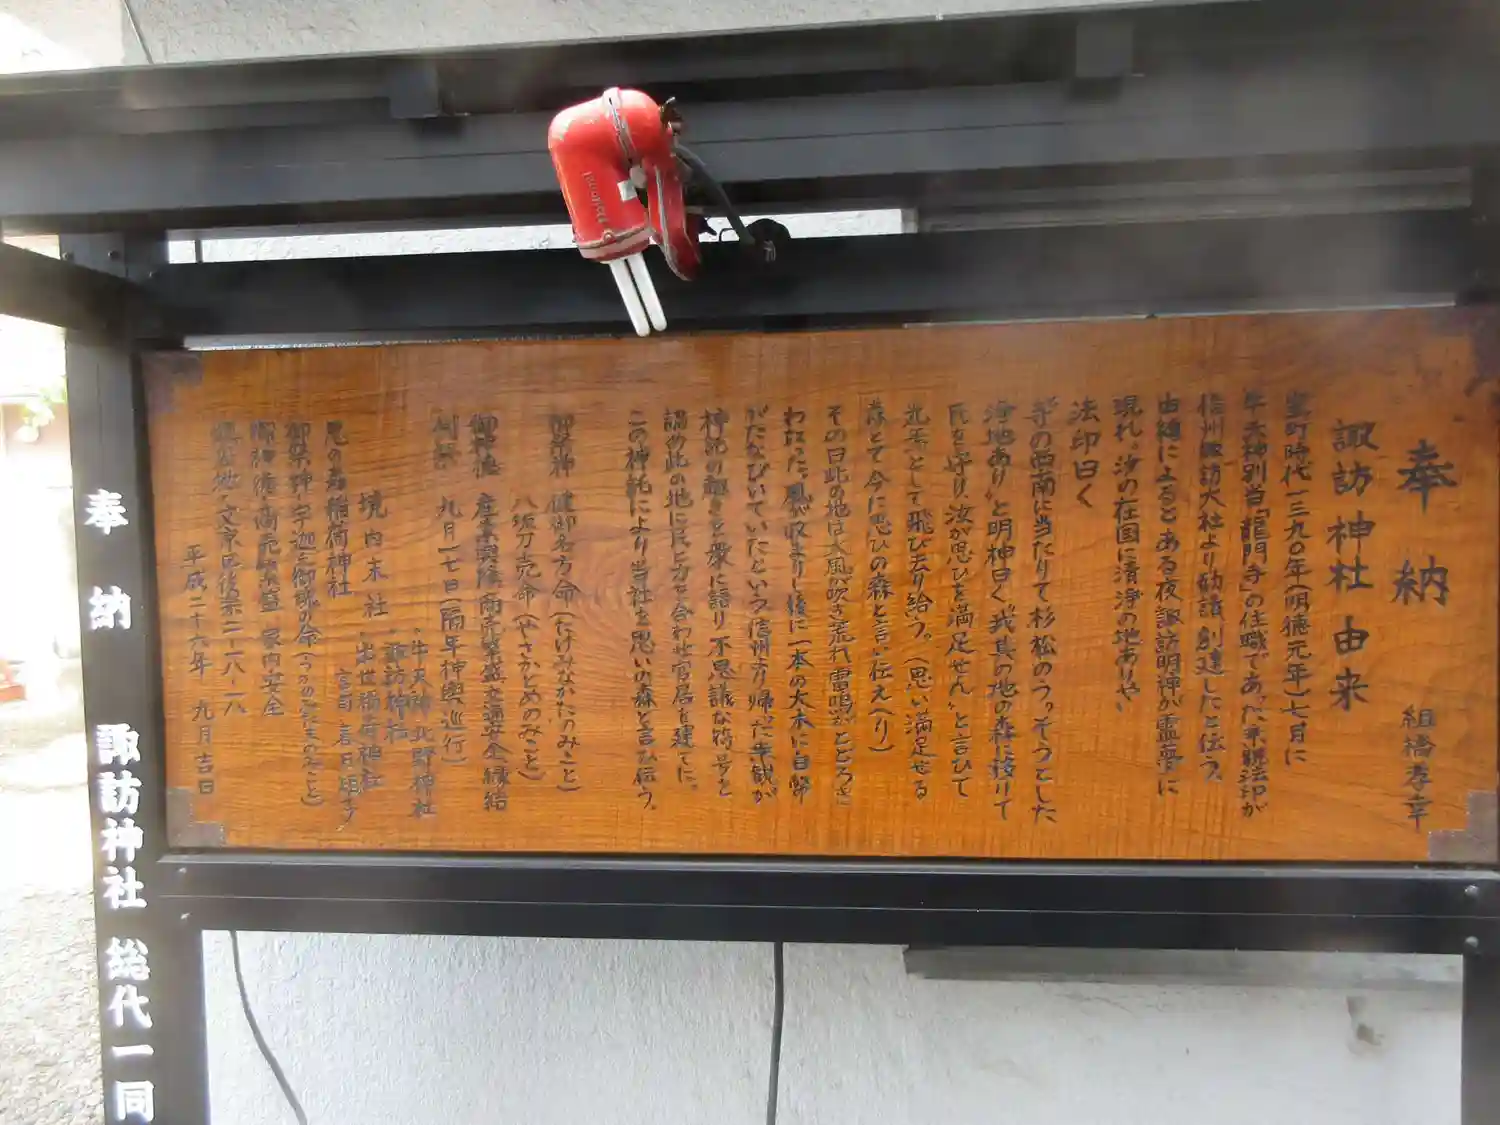 奉納
組橋孝幸
諏訪神社由来
室町時代一三九〇年(明徳元年)七月に
牛天神別当「龍門寺」の住職であった 法印が
信州諏訪大社より勧請、創建したと伝う。
由縁によるとある夜諏訪明神が霊夢に
現れ、汐の在国に清浄の地ありや、
法印曰く
寺の西南に当たりて杉松のうっそうとした
浄地あり〟と明神曰く〝我其の地の森に接けて
氏を守り、汝が思ひを満足せん〟と言ひて
光を として飛び去り給う。(思い満足せる
森とて今に思ひの森と言い伝え(り)
その日此の地は大風が吹き荒れ雷鳴がとどろき
わたった。風が収まりし後に一本の大木に白幣
がたなびいていたという信州より帰った が
神託の趣きを衆に語り不思議な符号と
認め此の地に氏と力を合わせ宮居を建てに。
この神託により当社を思いの森と言い伝う。
御祭神 健御名方命(たけみなかたのみこと)
八坂刀売命(やさかとめのみこと)
御神徳 産業興隆 商売繁盛 交通安全 縁結
例祭 九月二七日(隔年神輿巡行)
境内末社 ・牛天神北野神社
・諏訪神社 ・出世稲荷神社
宮司 春日
思の森稲荷神社
御祭神 宇迦之御魂の命(うかのみたまのみこと)
御神徳 商売繁盛 家内安全
鎮座地 文京区後楽二-一八-一八
平成二十六年 九月吉日
奉納 諏訪神社 総代一同